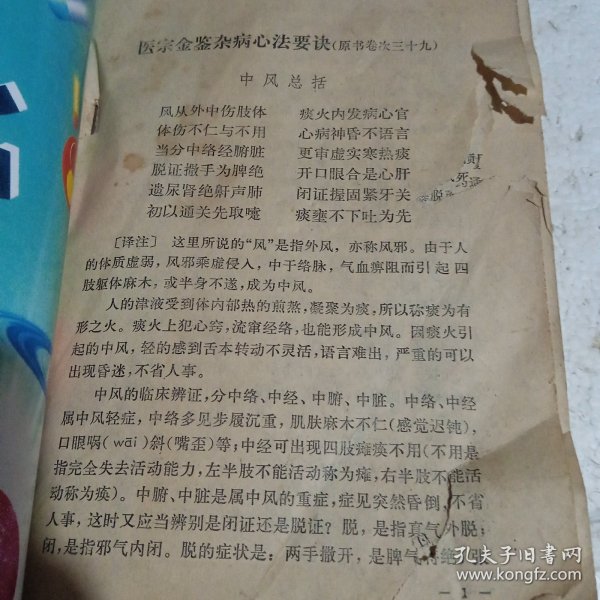 医宗金鉴杂病心法要诀(原书卷次三十九)
中风总括
风从外中伤肢体 痰火内发病心官
体伤不仁与不用 心病神昏不语言
当分中络经腑脏 更审虚实寒热痰
脱证撒手为脾绝 开口眼合是心肝
遗尿肾绝鼾声肺 闭证握固紧牙关
初以通关先取嚏 痰壅不下吐为先
〔译注〕 这里所说的“风”是指外风,亦称风邪。由于人
的体质虚弱,风邪乘虚侵入,中于络脉,气血痹阻而引起四
肢躯体麻木,或半身不遂,成为中风。
人的津液受到体内部热的煎熬,凝聚为痰,所以称痰为有
形之火。痰火上犯心窍,流窜经络,也能形成中风。因痰火引
起的中风,轻的感到舌本转动不灵活,语言难出,严重的可以
出现昏迷,不省人事。
中风的临床辨证,分中络、中经、中腑、中脏。中络、中经
属中风轻症,中络多见步履沉重,肌肤麻木不仁(感觉迟钝),
口眼㖞(wāi)斜(嘴歪)等;中经可出现四肢瘫痪不用(不用是
指完全失去活动能力,左半肢不能活动称为瘫,右半肢不能活
动称为痪)。中腑、中脏是属中风的重症,症见突然昏倒,不省
人事,这时又应当辨别是闭证还是脱证?脱,是指真气外脱;
闭,是指邪气内闭。脱的症状是:两手撒开,是脾气将绝
— 1 —
孔夫子旧书网
www.kongfz.com